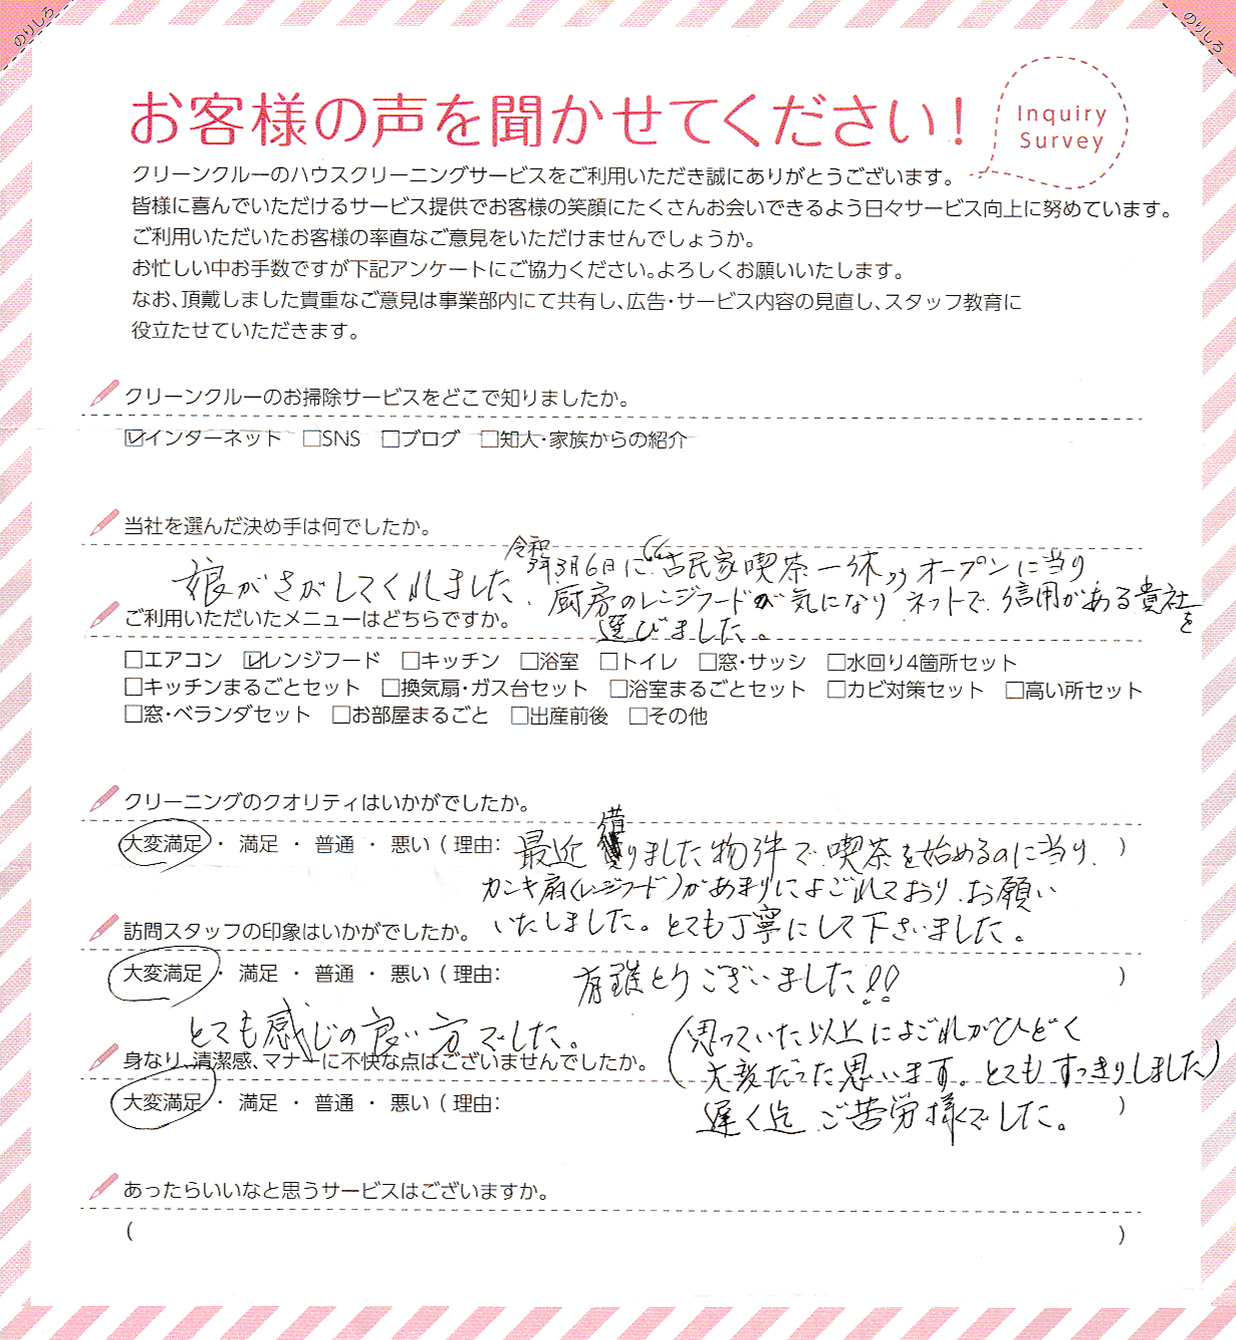 のりしろ
のりしろ
お客様の声を聞かせてください！
Inquiry
Survey
クリーンクルーのハウスクリーニングサービスをご利用いただき誠にありがとうございます。
皆様に喜んでいただけるサービス提供でお客様の笑顔にたくさんお会いできるよう日々サービス向上に努めています。
ご利用いただいたお客様の率直なご意見をいただけませんでしょうか。
お忙しい中お手数ですが下記アンケートにご協力ください。よろしくお願いいたします。
なお、頂戴しました貴重なご意見は事業部内にて共有し、広告・サービス内容の見直し、スタッフ教育に
役立たせていただきます。
クリーンクルーのお掃除サービスをどこで知りましたか。
☑インターネット □SNS □ブログ □知人・家族からの紹介
当社を選んだ決め手は何でしたか。
娘がさがしてくれました.
令和
3年3月6日に“古民家喫茶一休”オープンに当り
厨房のレンジフードが気になり ネットで、信用がある貴社を
選びました。
ご利用いただいたメニューはどちらですか。
□エアコン ☑レンジフード □キッチン □浴室 □トイレ □窓・サッシ □水回り4箇所セット
□キッチンまるごとセット □換気扇・ガス台セット □浴室まるごとセット □カビ対策セット □高い所セット
□窓・ベランダセット □お部屋まるごと □出産前後 □その他
クリーニングのクオリティはいかがでしたか。
大変満足 ・ 満足 ・ 普通 ・ 悪い ( 理由: 最近 借りました物件で、喫茶を始めるのに当り、 )
カンキ扇(レンジフード)があまりによごれており、お願い
いたしました。とても丁寧にして下さいました。
訪問スタッフの印象はいかがでしたか。
大変満足 ・ 満足 ・ 普通 ・ 悪い ( 理由: 有難とうございました!! )
とても感じの良い方でした。
(思っていた以上によごれがひどく
大変だった思います。とてもすっきりしました)
遅く迄、ご苦労様でした。
身なり、清潔感、マナーに不快な点はございませんでしたか。
大変満足 ・ 満足 ・ 普通 ・ 悪い ( 理由: )
あったらいいなと思うサービスはございますか。
( )